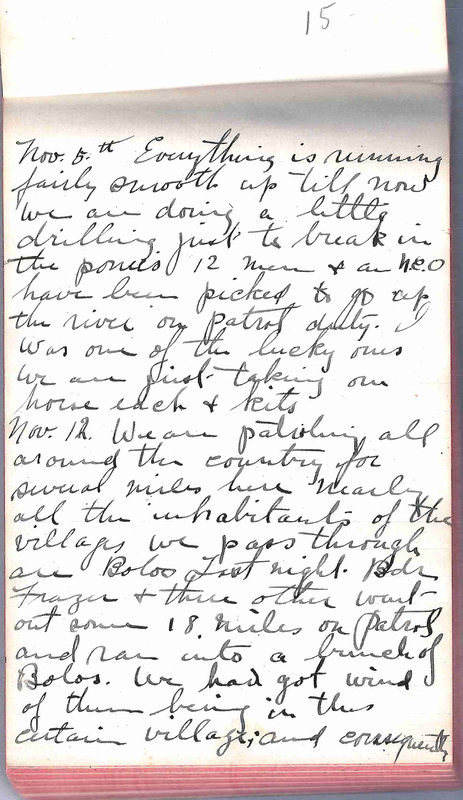 15
Nov. 5.th Everything is running
fairly smooth up till now
we are doing a little
drilling just to break in
the ponies 12 men & an N.C.O
have been picked to go up
the river on patrol duty. I
was one of the lucky ones
we are just taking one
horse each & kits
Nov. 12. We are patroling all
around the country for
several miles here nearly
all the inhabitants of the
villages we pass through
are Bolos Last night. Bdr
Frazer & three other went
out some 18 miles on patrol
and ran into a bunch of
Bolos. We had got wind
of them being in this
certain village; and consequently